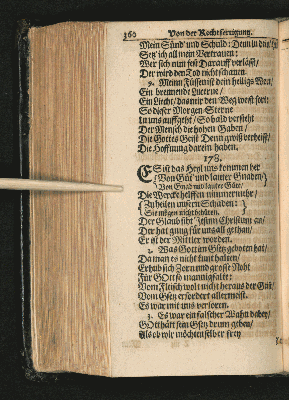 360 Von der Rechtfertigung.
Mein Sünd' und Schuld: Denn in dich
Setz' ich all mein Vertrauen:
Wer sich nun fest darauff verläst/
Der wird den Tod nicht schauen.
9. Meinn Füssen ist dein heiliges Wort/
Ein brennende Lucerne/
Ein Liecht/ das mir den Weg weist fort
So dieser Morgen-Sterne
In uns auffgeht/ Sobald versteht
Der Mensch die hohen Gaben/
Die Gottes Geist Denn gwiß verheist/
Die Hoffnung darein haben.
178.
ES ist das Heyl uns kommen her
Von Gnad und lauter Güte/
Die Wercke helffen nimmermehr/
Sie mögen nicht behüten.
Der Glaub siht Jesum Christum an/
Der hat gnug für uns all gethan/
Er ist der Mittler worden.
2. Was Gott im Gsetz geboten hat/
Da man es nicht kunt halten/
Erhub sich Zorn und grosse Noht
Für GOtt so mannigfalt:
Vom Fleisch wolt nicht heraus der Geist/
Vom Gsetz erfordert allermeist.
Es war mit uns verloren.
3. Es war ein falscher Wahn dabey/
GOtt hätt sein Gsetz drum geben/
Als ob wir möchten selber frey